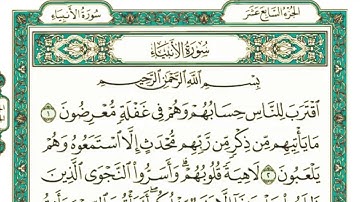 سُورَةُ الأَنبِيَاء
الجُزْءُ السَّابِعَ عَشَرَ
سُورَةُ الأَنبِيَاءِ
بِسْمِ اللَّهِ الرَّحْمَٰنِ الرَّحِيمِ
ٱقْتَرَبَ لِلنَّاسِ حِسَابُهُمْ وَهُمْ فِى غَفْلَةٍ مُّعْرِضُونَ ١
مَا يَأْتِيهِم مِّن ذِكْرٍ مِّن رَّبِّهِم مُّحْدَثٍ إِلَّا ٱسْتَمَعُوهُ وَهُمْ
يَلْعَبُونَ ٢ لَاهِيَةً قُلُوبُهُمْ ۗ وَأَسَرُّوا۟ ٱلنَّجْوَى ٱلَّذِينَ